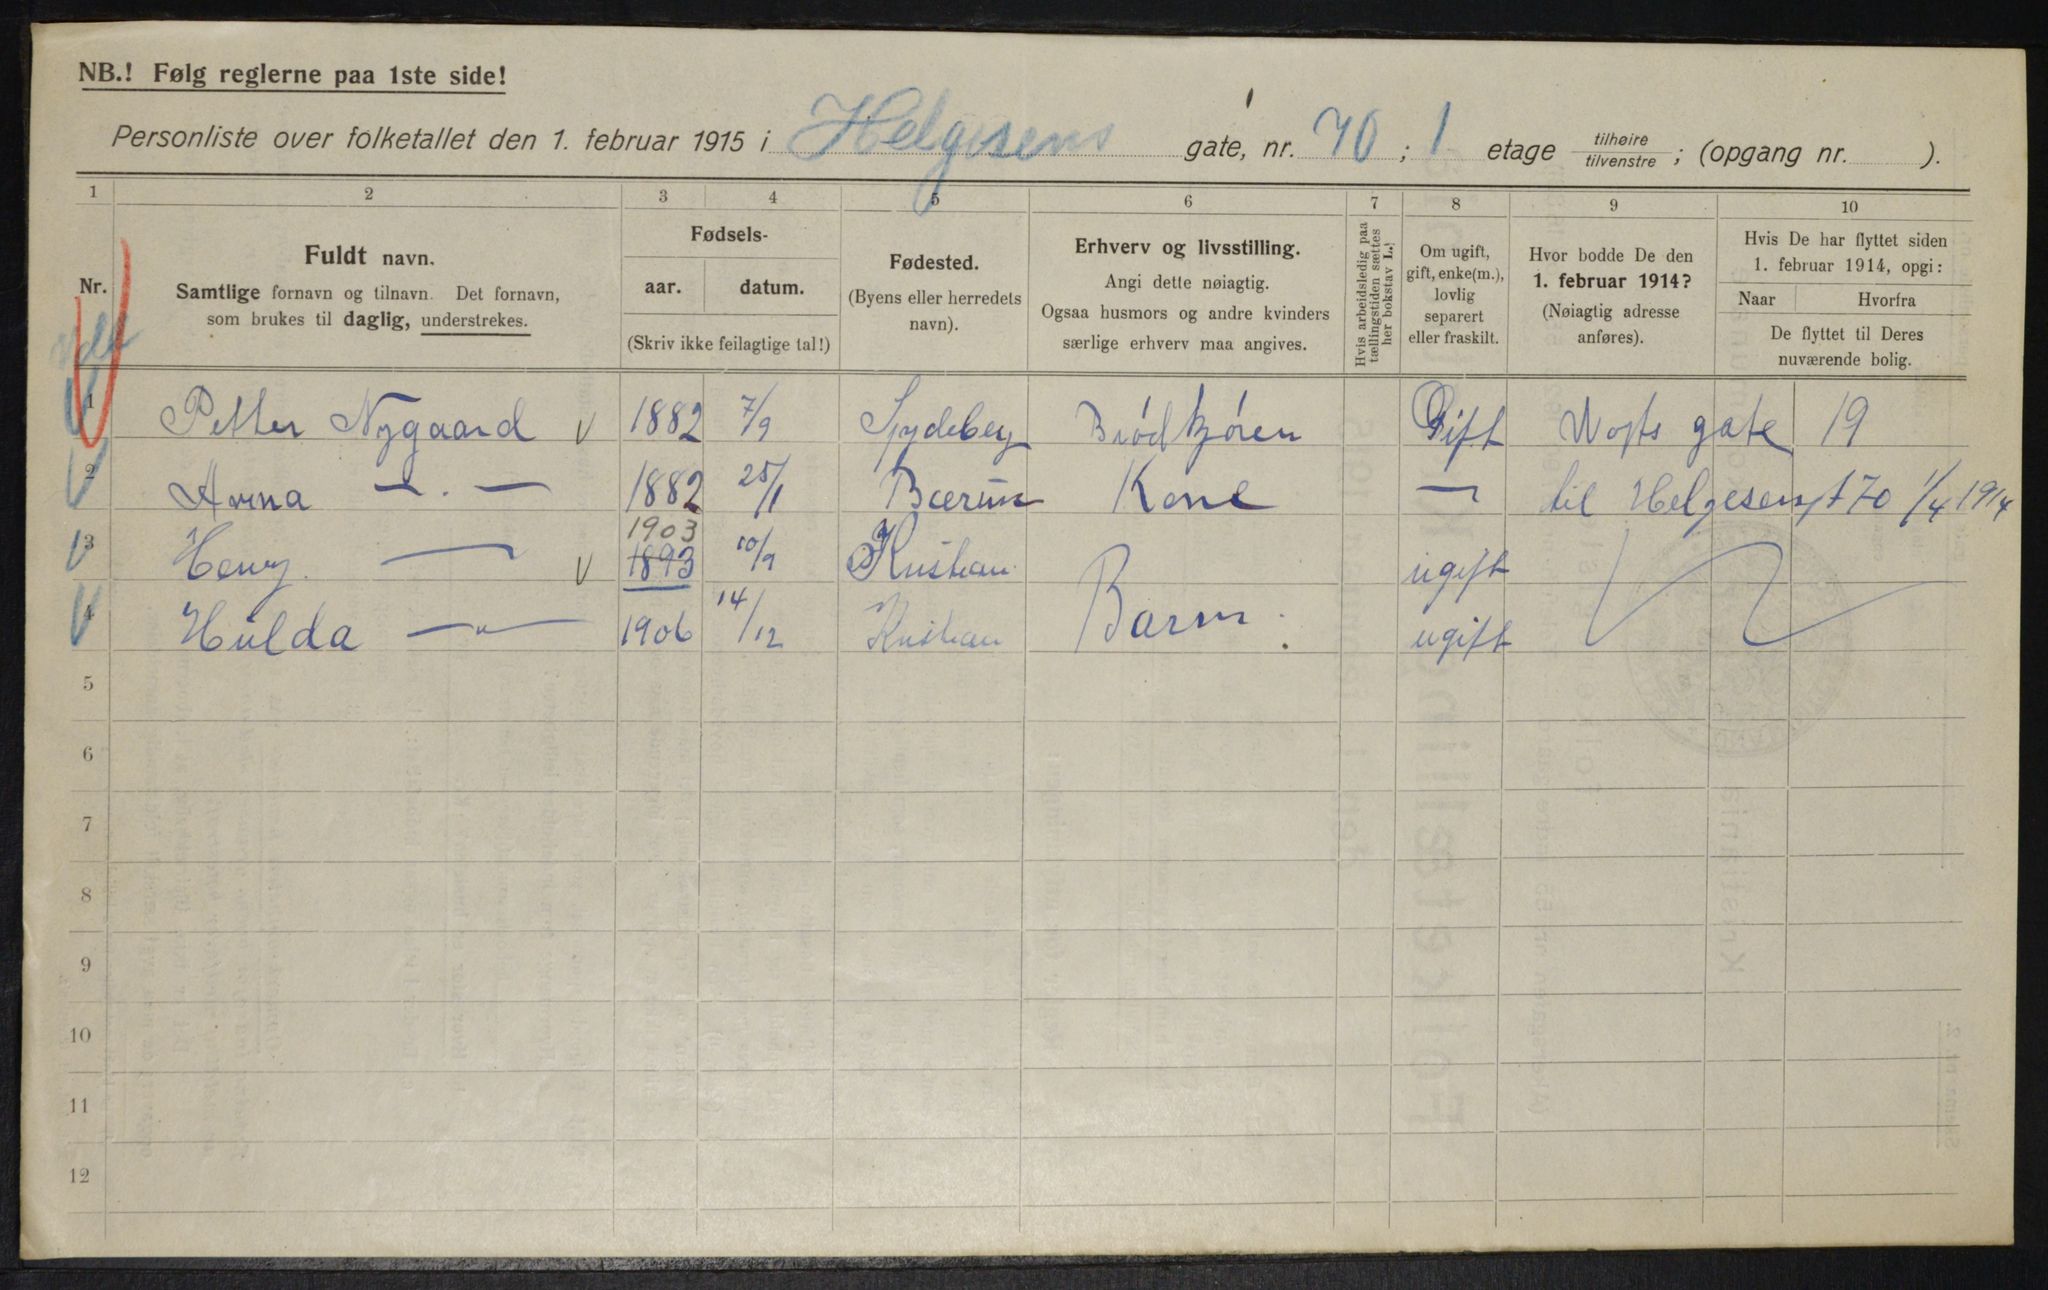 NB.! Følg reglerne paa 1ste side!
Personliste over folketallet den 1. februar 1915 i Helgesens gate, nr. 70; 1 etage tilhøire / tilvenstre; (opgang nr. ).
1 2 3 4 5 6 7 8 9 10
Nr.
Fuldt navn.
Samtlige fornavn og tilnavn. Det fornavn,
som brukes til daglig, understrekes.
Fødsels-
aar. datum.
(Skriv ikke feilagtige tal!)
Fødested.
(Byens eller herredets
navn).
Erhverv og livsstilling.
Angi dette nøiagtig.
Ogsaa husmors og andre kvinders
særlige erhverv maa angives.
Hvis arbeidsledig paa
tællingstiden sættes
her bokstav L.!
Om ugift,
gift, enke(m.),
lovlig
separert
eller fraskilt.
Hvor bodde De den
1. februar 1914?
(Nøiagtig adresse
anføres).
Hvis De har flyttet siden
1. februar 1914, opgi:
Naar Hvorfra
De flyttet til Deres
nuværende bolig.
1 Petter Nygaard v 1882 7/9 Spydeberg Brödkjören Gift Vogts gate 19
2 Anna — . — 1882 25/1 Bærum Kone — til Helgesensgt 70 1/4 1914
1903
3 Henry — v 1893 10/9 Kristian ugift
4 Hulda — " — 1906 14/12 Kristian Barn. ugift
5
6
7
8
9
10
11
12